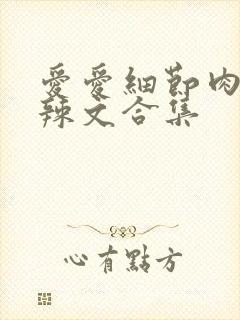 愛愛細節肉
辣文合集
心有點方